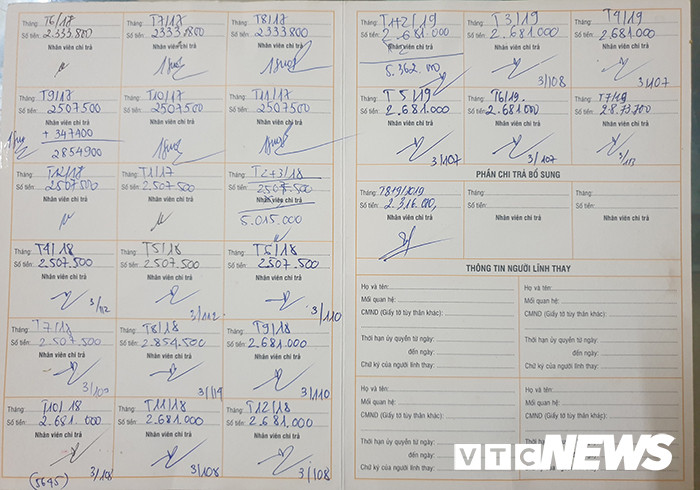 Tháng: T6/17
Số tiền: 2.333.800
Nhân viên chi trả
Tháng: T7/17
Số tiền: 2333.800
Nhân viên chi trả
Tháng: T8/17
Số tiền: 2333.800
Nhân viên chi trả
Tháng: T9/17
Số tiền: 2507.500
Nhân viên chi trả
+ 347400
2854900
Tháng: T10/17
Số tiền: 2507500
Nhân viên chi trả
Tháng: T11/17
Số tiền: 2507500
Nhân viên chi trả
Tháng: T12/17
Số tiền: 2507.500
Nhân viên chi trả
Tháng: T1/17
Số tiền: 2.507.500
Nhân viên chi trả
Tháng: T2+3/18
Số tiền: 2507.500
Nhân viên chi trả
5.015.000
Tháng: T4/18
Số tiền: 2.507.500
Nhân viên chi trả
3/112
Tháng: T5/18
Số tiền: 2.507.500
Nhân viên chi trả
3/112
Tháng: T6/18
Số tiền: 2507.500
Nhân viên chi trả
3/110
Tháng: T7/18
Số tiền: 2.507.500
Nhân viên chi trả
3/109
Tháng: T8/18
Số tiền: 2.854.500
Nhân viên chi trả
Tháng: T9/18
Số tiền: 2.681.000
Nhân viên chi trả
3/110
Tháng: T10/18
Số tiền: 2.681.000
Nhân viên chi trả
3/108
(5645)
Tháng: T11/18
Số tiền: 2.681.000
Nhân viên chi trả
3/108
Tháng: T12/18
Số tiền: 2.681.000
Nhân viên chi trả
3/108
Tháng: T1+2/19
Số tiền: 2.681.000
Nhân viên chi trả
5.362.000
Tháng: T3/19
Số tiền: 2.681.000
Nhân viên chi trả
3/108
Tháng: T4/19
Số tiền: 2.681.000
Nhân viên chi trả
3/107
Tháng: T5/19
Số tiền: 2.681.000
Nhân viên chi trả
3/107
Tháng: T6/19.
Số tiền: 2.681.000
Nhân viên chi trả
3/107
Tháng: T7/19
Số tiền: 2.873.700
Nhân viên chi trả
3/113
PHẦN CHI TRẢ BỔ SUNG
Tháng: 7819/2019
Số tiền: 2.316.000,
Nhân viên chi trả
Tháng:
Số tiền:
Nhân viên chi trả
Tháng:
Số tiền:
Nhân viên chi trả
THÔNG TIN NGƯỜI LĨNH THAY
Họ và tên:
Mối quan hệ:
CMND (Giấy tờ tùy thân khác):
Thời hạn ủy quyền từ ngày:
đến ngày:
Chữ ký của người lĩnh thay:
Họ và tên:
Mối quan hệ:
CMND (Giấy tờ tùy thân khác):
Thời hạn ủy quyền từ ngày:
đến ngày:
Chữ ký của người lĩnh thay:
Họ và tên:
Mối quan hệ:
CMND (Giấy tờ tùy thân khác):
Thời hạn ủy quyền từ ngày:
đến ngày:
Chữ ký của người lĩnh thay:
Họ và tên:
Mối quan hệ:
CMND (Giấy tờ tùy thân khác):
Thời hạn ủy quyền từ ngày:
VTC NEWS